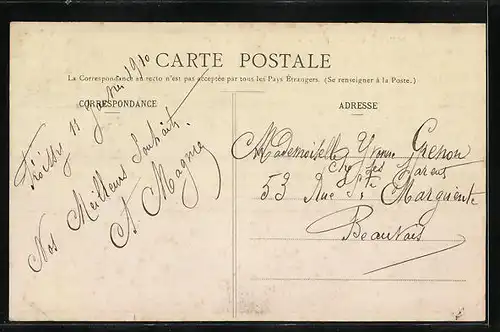 CARTE POSTALE
La Correspondance au recto n'est pas acceptée par tous les Pays Étrangers. (Se renseigner à la Poste.)
CORRESPONDANCE
11 Janvier 1910
Nos Meilleurs Souhaits.
A. Magnier
ADRESSE
Mademoiselle Yvonne Grenon
Chez ses Parents
53 Rue Ste Marguerite
Beauvais